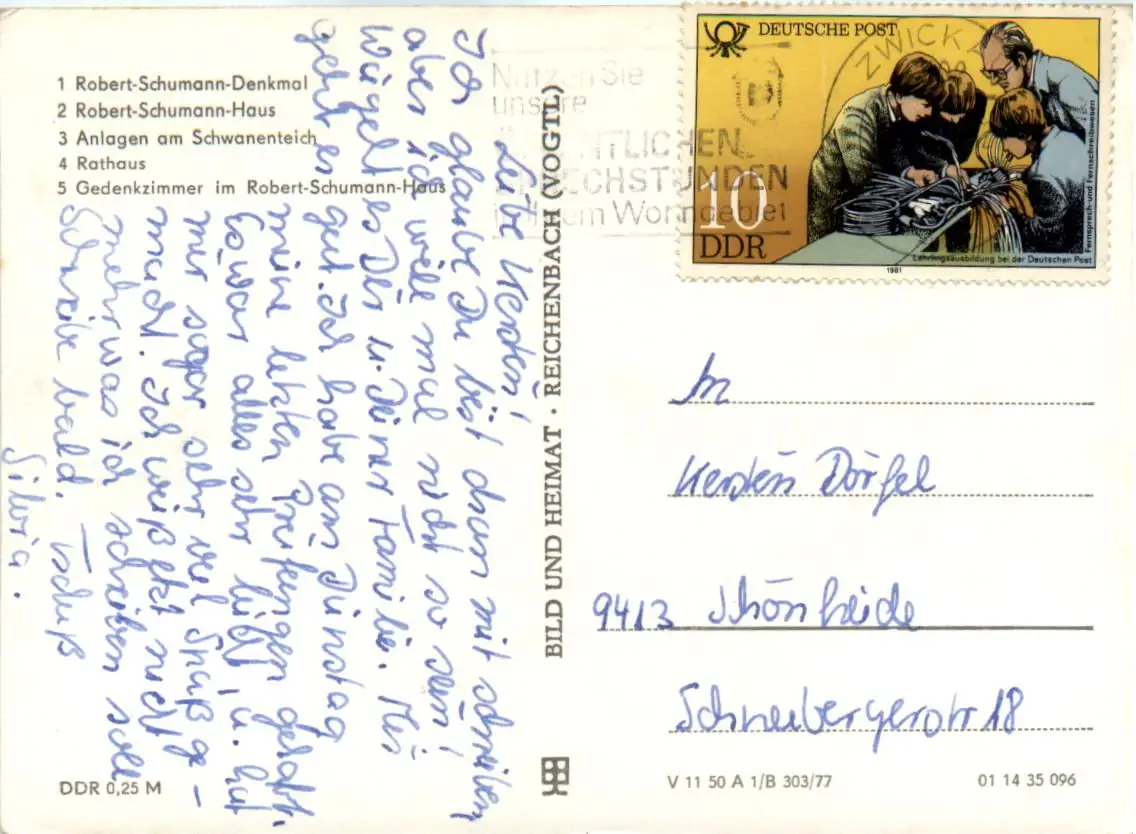 1 Robert-Schumann-Denkmal
2 Robert-Schumann-Haus
3 Anlagen am Schwanenteich
4 Rathaus
5 Gedenkzimmer im Robert-Schumann-Haus
Liebe Kerstin!
Ich glaube Du bist drum mit schreiben
aber ich will mal nicht so sein!
Wie geht es Dir u. Deiner Familie. Mir
geht es
gut. Ich habe am Dienstag
meine letzten Prüfungen gehabt.
Es war alles sehr leicht u. hat
mir sogar sehr viel Spaß ge-
macht. Ich weiß jetzt nicht
mehr was ich schreiben soll
Schreibe bald. Tschüß
Silvia.
DDR 0,25 M
BILD UND HEIMAT · REICHENBACH (VOGTL)
Nutzen Sie
unsere
ÖFFENTLICHEN
SPRECHSTUNDEN
in Ihrem Wohngebiet
ZWICKA
DEUTSCHE POST
10
DDR
Fernsprech- und Fernschreibwesen
Lehrlingsausbildung bei der Deutschen Post
1981
An
Kerstin Dörfel
9413 Schönheide
Schneebergerstr 18
V 11 50 A 1/B 303/77
01 14 35 096